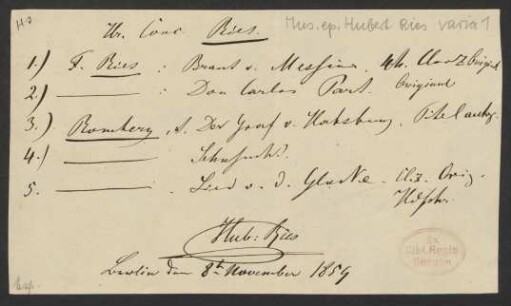 Mus. ep. Hubert Ries Varia 1
Hr. Conc. Ries.
1.) F. Ries : Braut v. Messina. 4h. Original
2.) ——— : Don Carlos Part. Original
3.) Romberg, A. Der Graf v. Habsburg.
4.) ———
5. ——— Lied v. d. Glocke. Orig.
Hdschr.
Hub: Ries
Berlin den 8t November 1859
Ex
Bibl. Regia
Berolin.